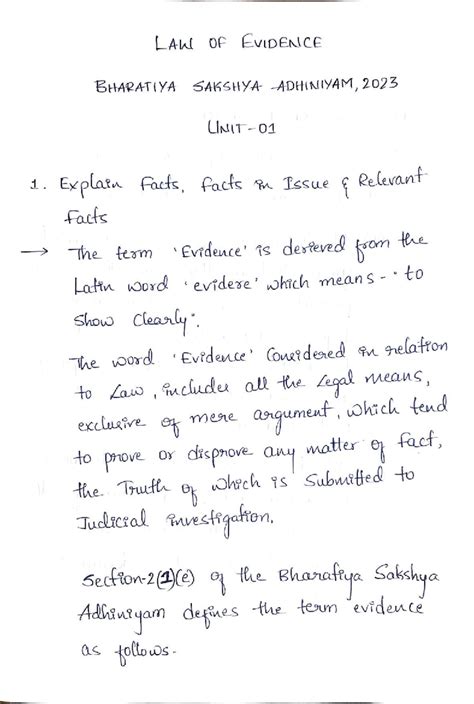 LAW OF EVIDENCE
BHARATIYA SAKSHYA ADHINIYAM, 2023
UNIT-01
1. Explain Facts, Facts in Issue & Relevant
Facts
→ The term 'Evidence' is derieved from the
Latin word 'evidere' which means - 'to
Show Clearly'.
The word 'Evidence' Considered in relation
to Law, includes all the Legal means,
exclusive of mere argument, which tend
to prove or disprove any matter of fact,
the Truth of which is Submitted to
Judicial investigation.
Section-2(1)(e) of the Bharatiya Sakshya
Adhiniyam defines the term evidence
as follows-